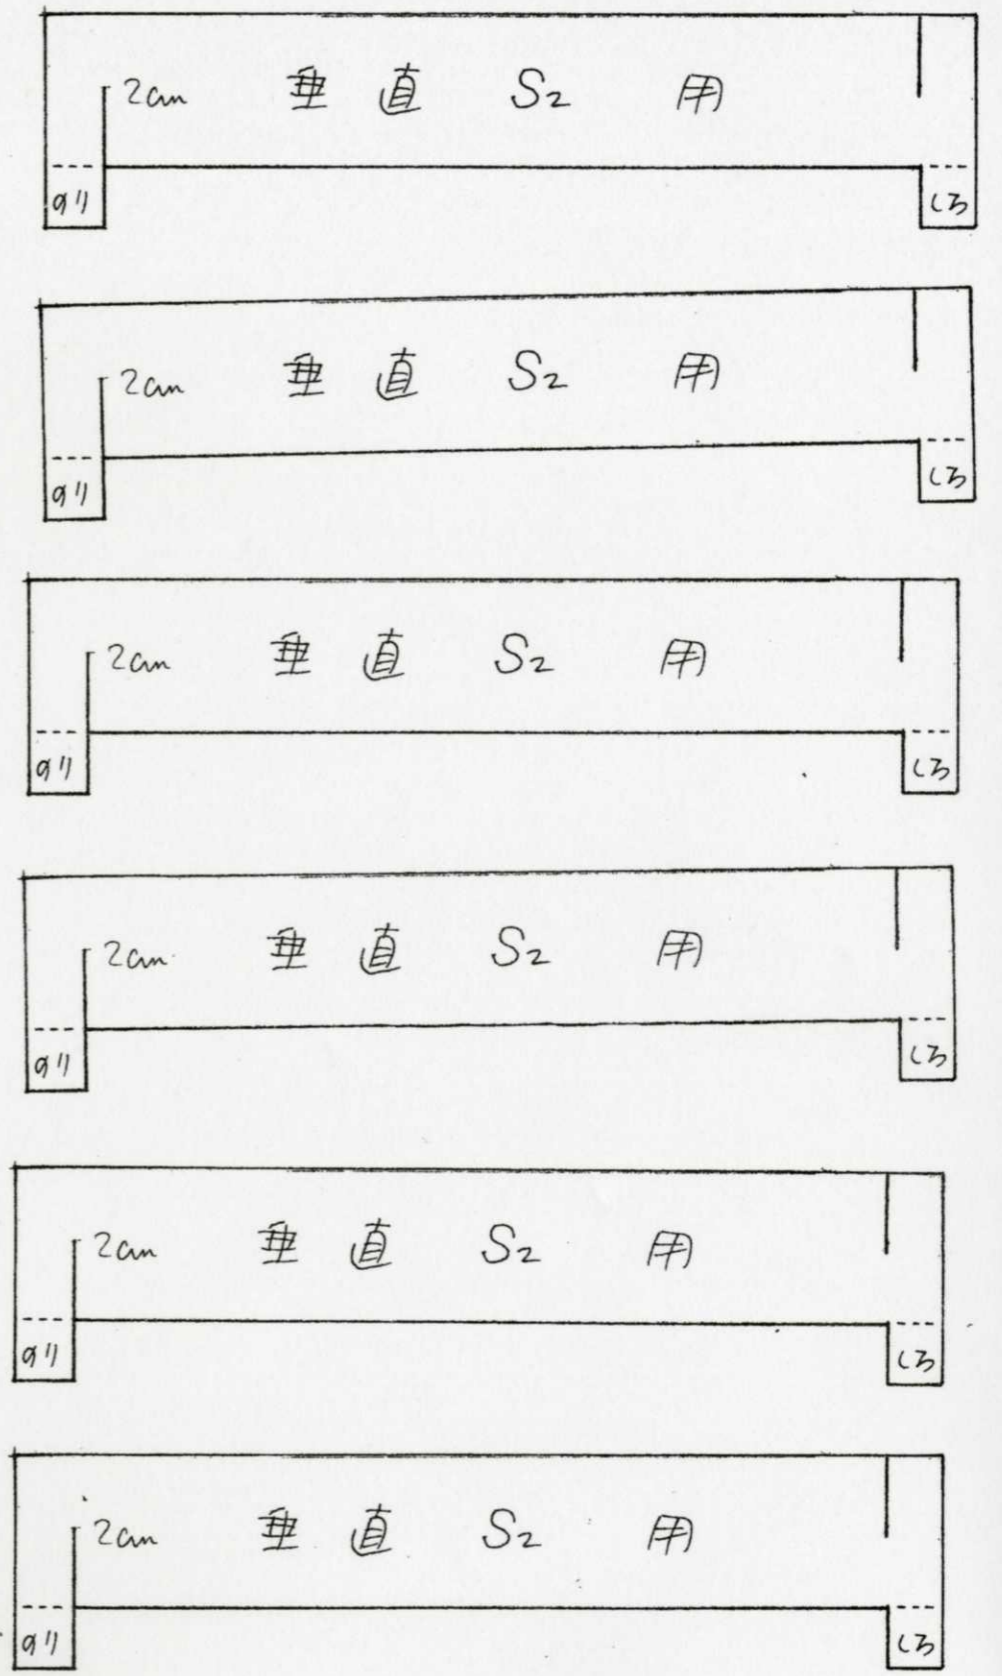 2cm 垂直 S2 用
のり しろ
2cm 垂直 S2 用
のり しろ
2cm 垂直 S2 用
のり しろ
2cm 垂直 S2 用
のり しろ
2cm 垂直 S2 用
のり しろ
2cm 垂直 S2 用
のり しろ